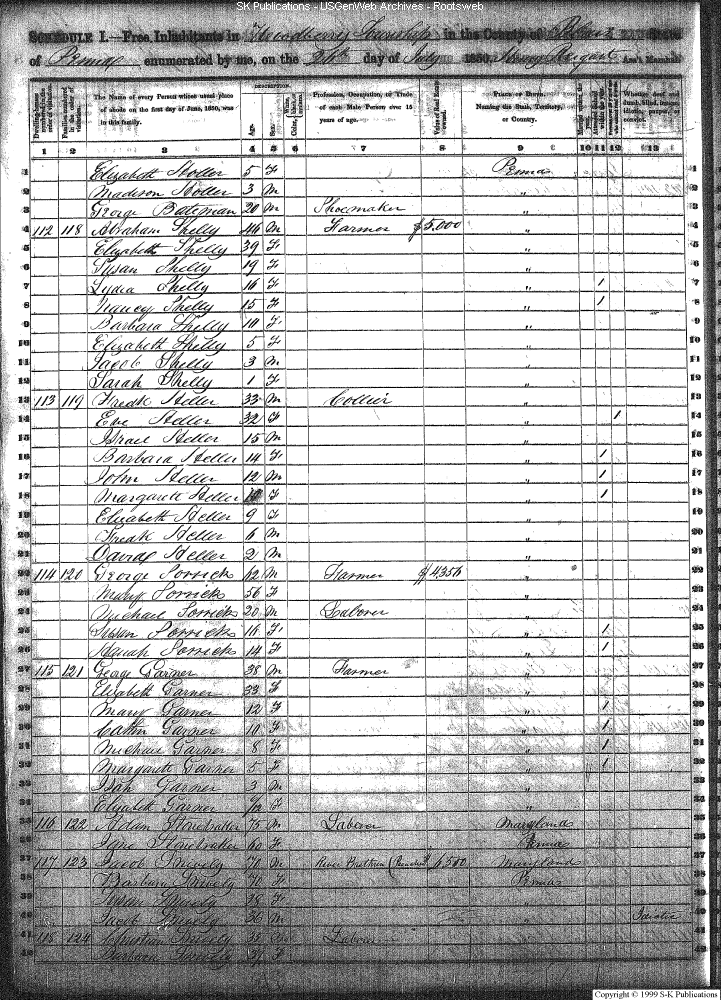 SK Publications - USGenWeb Archives - Rootsweb
SCHEDULE I.—Free Inhabitants in Woodberry Township in the County of State
of Penna enumerated by me, on the day of July 1850. Ass't Marshal
Dwelling-houses numbered in the order of visitation.
Families numbered in the order of visitation.
The Name of every Person whose usual place of abode on the first day of June, 1850, was in this family.
DESCRIPTION.
Age.
Sex.
White,
Color,
Profession, Occupation, or Trade of each Male Person over 15 years of age.
Value of Real Estate owned.
PLACE OF BIRTH. Naming the State, Territory, or Country.
Whether deaf and dumb, blind, insane, idiotic, pauper, or convict.
1 2 3 4 5 6 7 8 9 10 11 12 13
1 Elizabeth Stoller 5 F Penna 1
2 Madison Stoller 3 M " 2
3 George Bateman 20 M Shoemaker " 3
4 112 118 Abraham Shelly 46 M Farmer $5,000 " 4
5 Elizabeth Shelly 39 F " 5
6 Susan Shelly 19 F " 6
7 Lydia Shelly 16 F " 1 7
8 Nancy Shelly 15 F " 1 8
9 Barbara Shelly 10 F " 9
10 Elizabeth Shelly 5 F " 10
11 Jacob Shelly 3 M " 11
12 Sarah Shelly 1 F " 12
13 113 119 Fredk Steller 33 M Collier " 13
14 Eve Steller 32 F " 1 14
15 Israel Steller 15 M " 15
16 Barbara Steller 14 F " 1 16
17 John Steller 12 M " 1 17
18 Margarete Steller F " 1 18
19 Elizabeth Steller 9 F " 19
20 Fredk Steller 6 M " 20
21 David Steller 2 M " 21
22 114 120 George Sorrick 62 M Farmer $4356 " 22
23 Mary Sorrick 56 F " 23
24 Michael Sorrick 20 M Laborer " 24
25 Susan Sorrick 16 F " 1 25
26 Sorrick 14 F " 1 26
27 115 121 George Garner 38 M Farmer " 27
28 Elizabeth Garner 33 F " 28
29 Mary Garner 12 F " 1 29
30 Cathn Garner 10 F " 1 30
31 Michael Garner 8 F " 1 31
32 Margarete Garner 5 F " 1 32
33 Garner 3 M " 33
34 Elizabeth Garner F " 34
35 116 122 Adam Stonebraker 75 M Laborer Maryland 35
36 Jane Stonebraker 60 F Penna 36
37 117 123 Jacob Snively 70 M River Brethren 6,500 Maryland 37
38 Barbara Snively 70 F Penna 38
39 Susan Snively 28 F " 39
40 Jacob Snively 36 M " Idiotic 40
41 118 124 Christian Snively 35 Laborer " 41
42 Barbara Snively F " 42
Copyright © 1999 S-K Publications